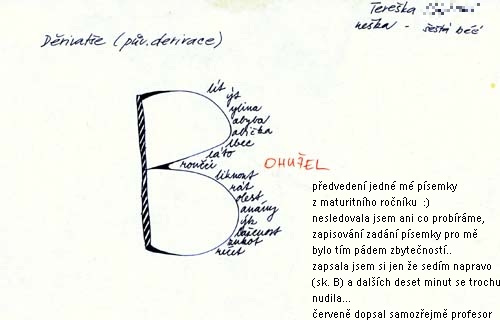 Tereška
neška - šestá béé
(pův. derivace)
lít
ýt
ylina
abička
lbec
láto
OHUŘEL
liknout
rát
olest
anány
ýk
laženost
zukot
ručet
předvedení jedné mé písemky
z maturitního ročníku :)
nesledovala jsem ani co probíráme,
zapisování zadání písemky pro mě
bylo tím pádem zbytečností..
zapsala jsem si jen že sedím napravo
(sk. B) a dalších deset minut se trochu
nudila...
červeně dopsal samozřejmě profesor